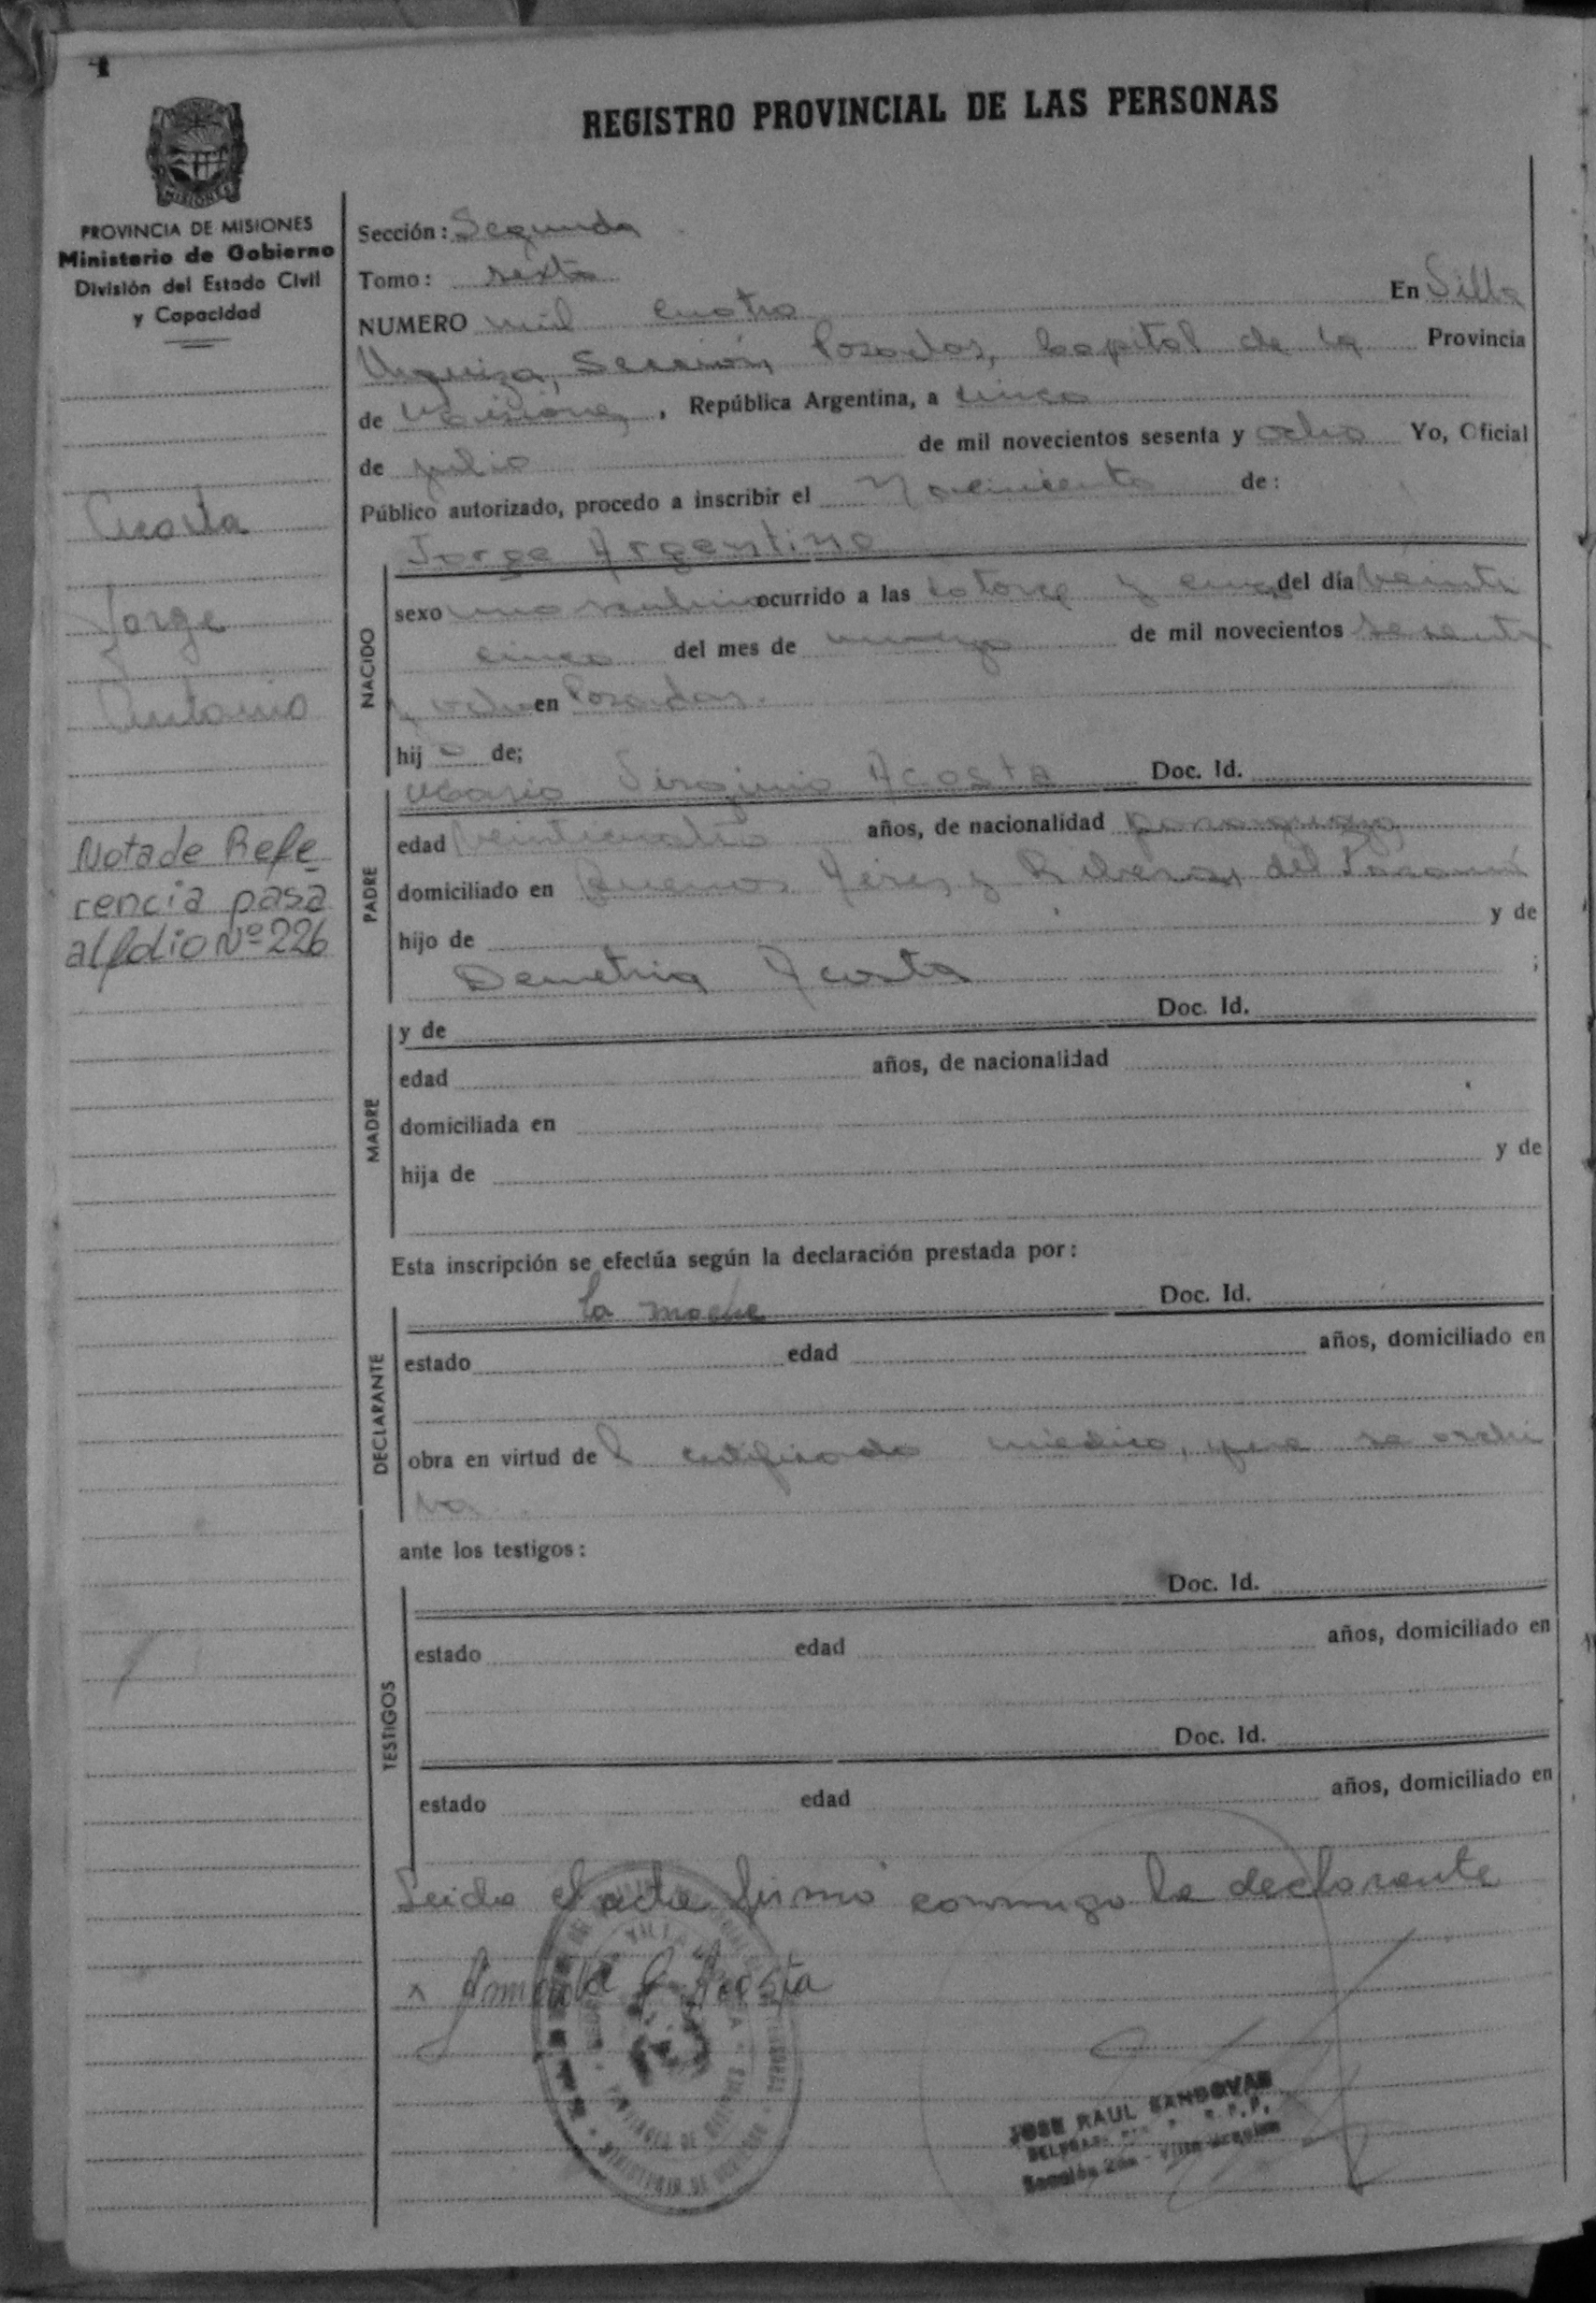 4
REGISTRO PROVINCIAL DE LAS PERSONAS
MISIONES
PROVINCIA DE MISIONES
Ministerio de Gobierno
División del Estado Civil
y Capacidad
Acosta
Jorge
Antonio
Nota de Refe-
rencia pasa
al folio Nº 226
Sección: Segunda
Tomo: sexto
NUMERO mil cuatro En Villa
Urquiza, Sección, Posadas, Capital de la Provincia
de Misiones, República Argentina, a cinco
de julio de mil novecientos sesenta y ocho Yo, Oficial
Público autorizado, procedo a inscribir el Nacimiento de:
Jorge Argentino
NACIDO
sexo masculino ocurrido a las catorce y del día veinti
cinco del mes de de mil novecientos sesenta
y ocho en Posadas.
hijo de;
PADRE
Virginio Acosta Doc. Id.
edad veinticuatro años, de nacionalidad paraguayo,
domiciliado en Buenos Aires y Riberas del Paraná
hijo de y de
Demetria Acosta ;
MADRE
y de Doc. Id.
edad años, de nacionalidad
domiciliada en
hija de y de
Esta inscripción se efectúa según la declaración prestada por:
DECLARANTE
la madre Doc. Id.
estado edad años, domiciliado en
obra en virtud del certificado médico, que se archi
va.
ante los testigos:
TESTIGOS
Doc. Id.
estado edad años, domiciliado en
Doc. Id.
estado edad años, domiciliado en
Leida el acta firmó conmigo la declarante
x Acosta
JOSE RAUL SANDOVAL
R.P.P.
Sección 2da - Villa Urquiza